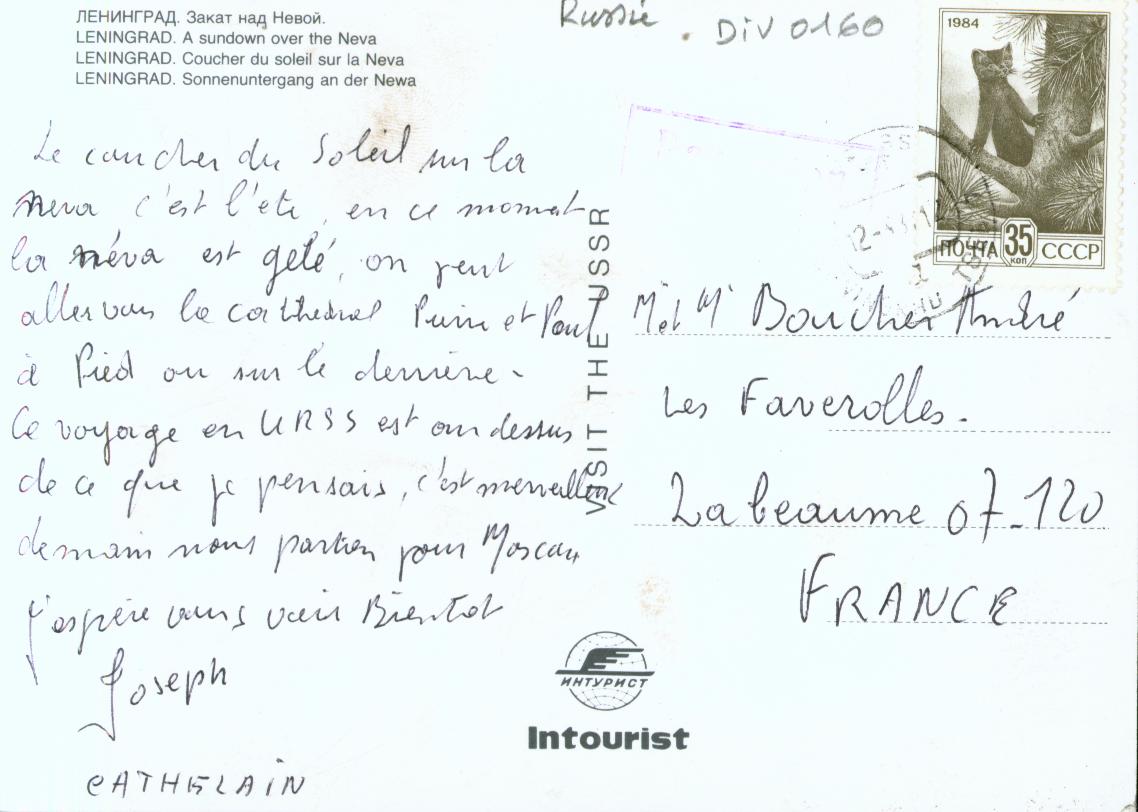 ЛЕНИНГРАД. Закат над Невой.
LENINGRAD. A sundown over the Neva
LENINGRAD. Coucher du soleil sur la Neva
LENINGRAD. Sonnenuntergang an der Newa
Russie
DiV 0160
1984
ПОЧТА 35 КОП СССР
Le coucher du Soleil sur la
neva c'est l'été, en ce moment
la néva est gelé, on peut
aller voir la cathédral Pierre et Paul
à Pied ou sur le derrière.
Ce voyage en URSS est au dessus
de ce que je pensais, c'est merveilleux
demain nous parton pour Moscou
j'espère vous voir Bientot
Joseph
CATHELAiN
VISIT THE USSR
M et Mr Boucher André
Les Faverolles.
Labeaume 07-120
FRANCE
ИНТУРИСТ
Intourist